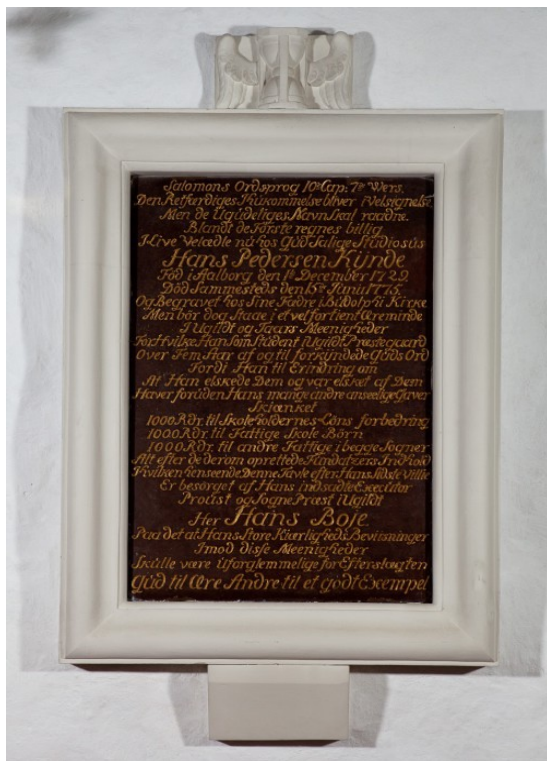 Salomons Ordsprog 10de Cap: 7de Wers.
Den Retfærdiges Ihukommelse bliver i Velsignelse,
Men de Ugudeliges Navn skal raadne.
Blandt de Første regnes billig
I Live Velædle nu hos Gud Salige Studiosus
Hans Pedersen Kynde
Fød i Aalborg den 1te December 1729.
Død Sammesteds den 15de Junii 1775.
Og Begravet hos Sine Fædre i Budolphi Kirke
Men bør dog Staae i et velfortient Æreminde
I Ugildt og Taars Meenigheder
Forhvilke Han som Student i Ugildt Præstegaard
Over Fem Aar af og til forkyndede Guds Ord
Fordi Han til Erindring om
At Han elskede Dem og var elsket af Dem
Haver foruden Hans mange andre anseelige Gaver
Skiænket
1000 Rdr. til Skoleholdernes Løns forbedring
1000 Rdr. til Fattige Skole Børn
1000 Rdr. til andre Fattige i begge Sogner
Alt efter de derom oprettede Fundatzers Indhold
I hvilken henseende Denne Tavle efter Hans Sidste Villie
Er besørget af Hans indsadte Executor
Provst og Sogne Præst i Ugildt
Her Hans Boje
Paa det at Hans Store Kiærligheds Beviisninger
Imod disse Meenigheder
Skulle være uforglemmelige for Efterslægten
Gud til Ære Andre til et godt Exempel